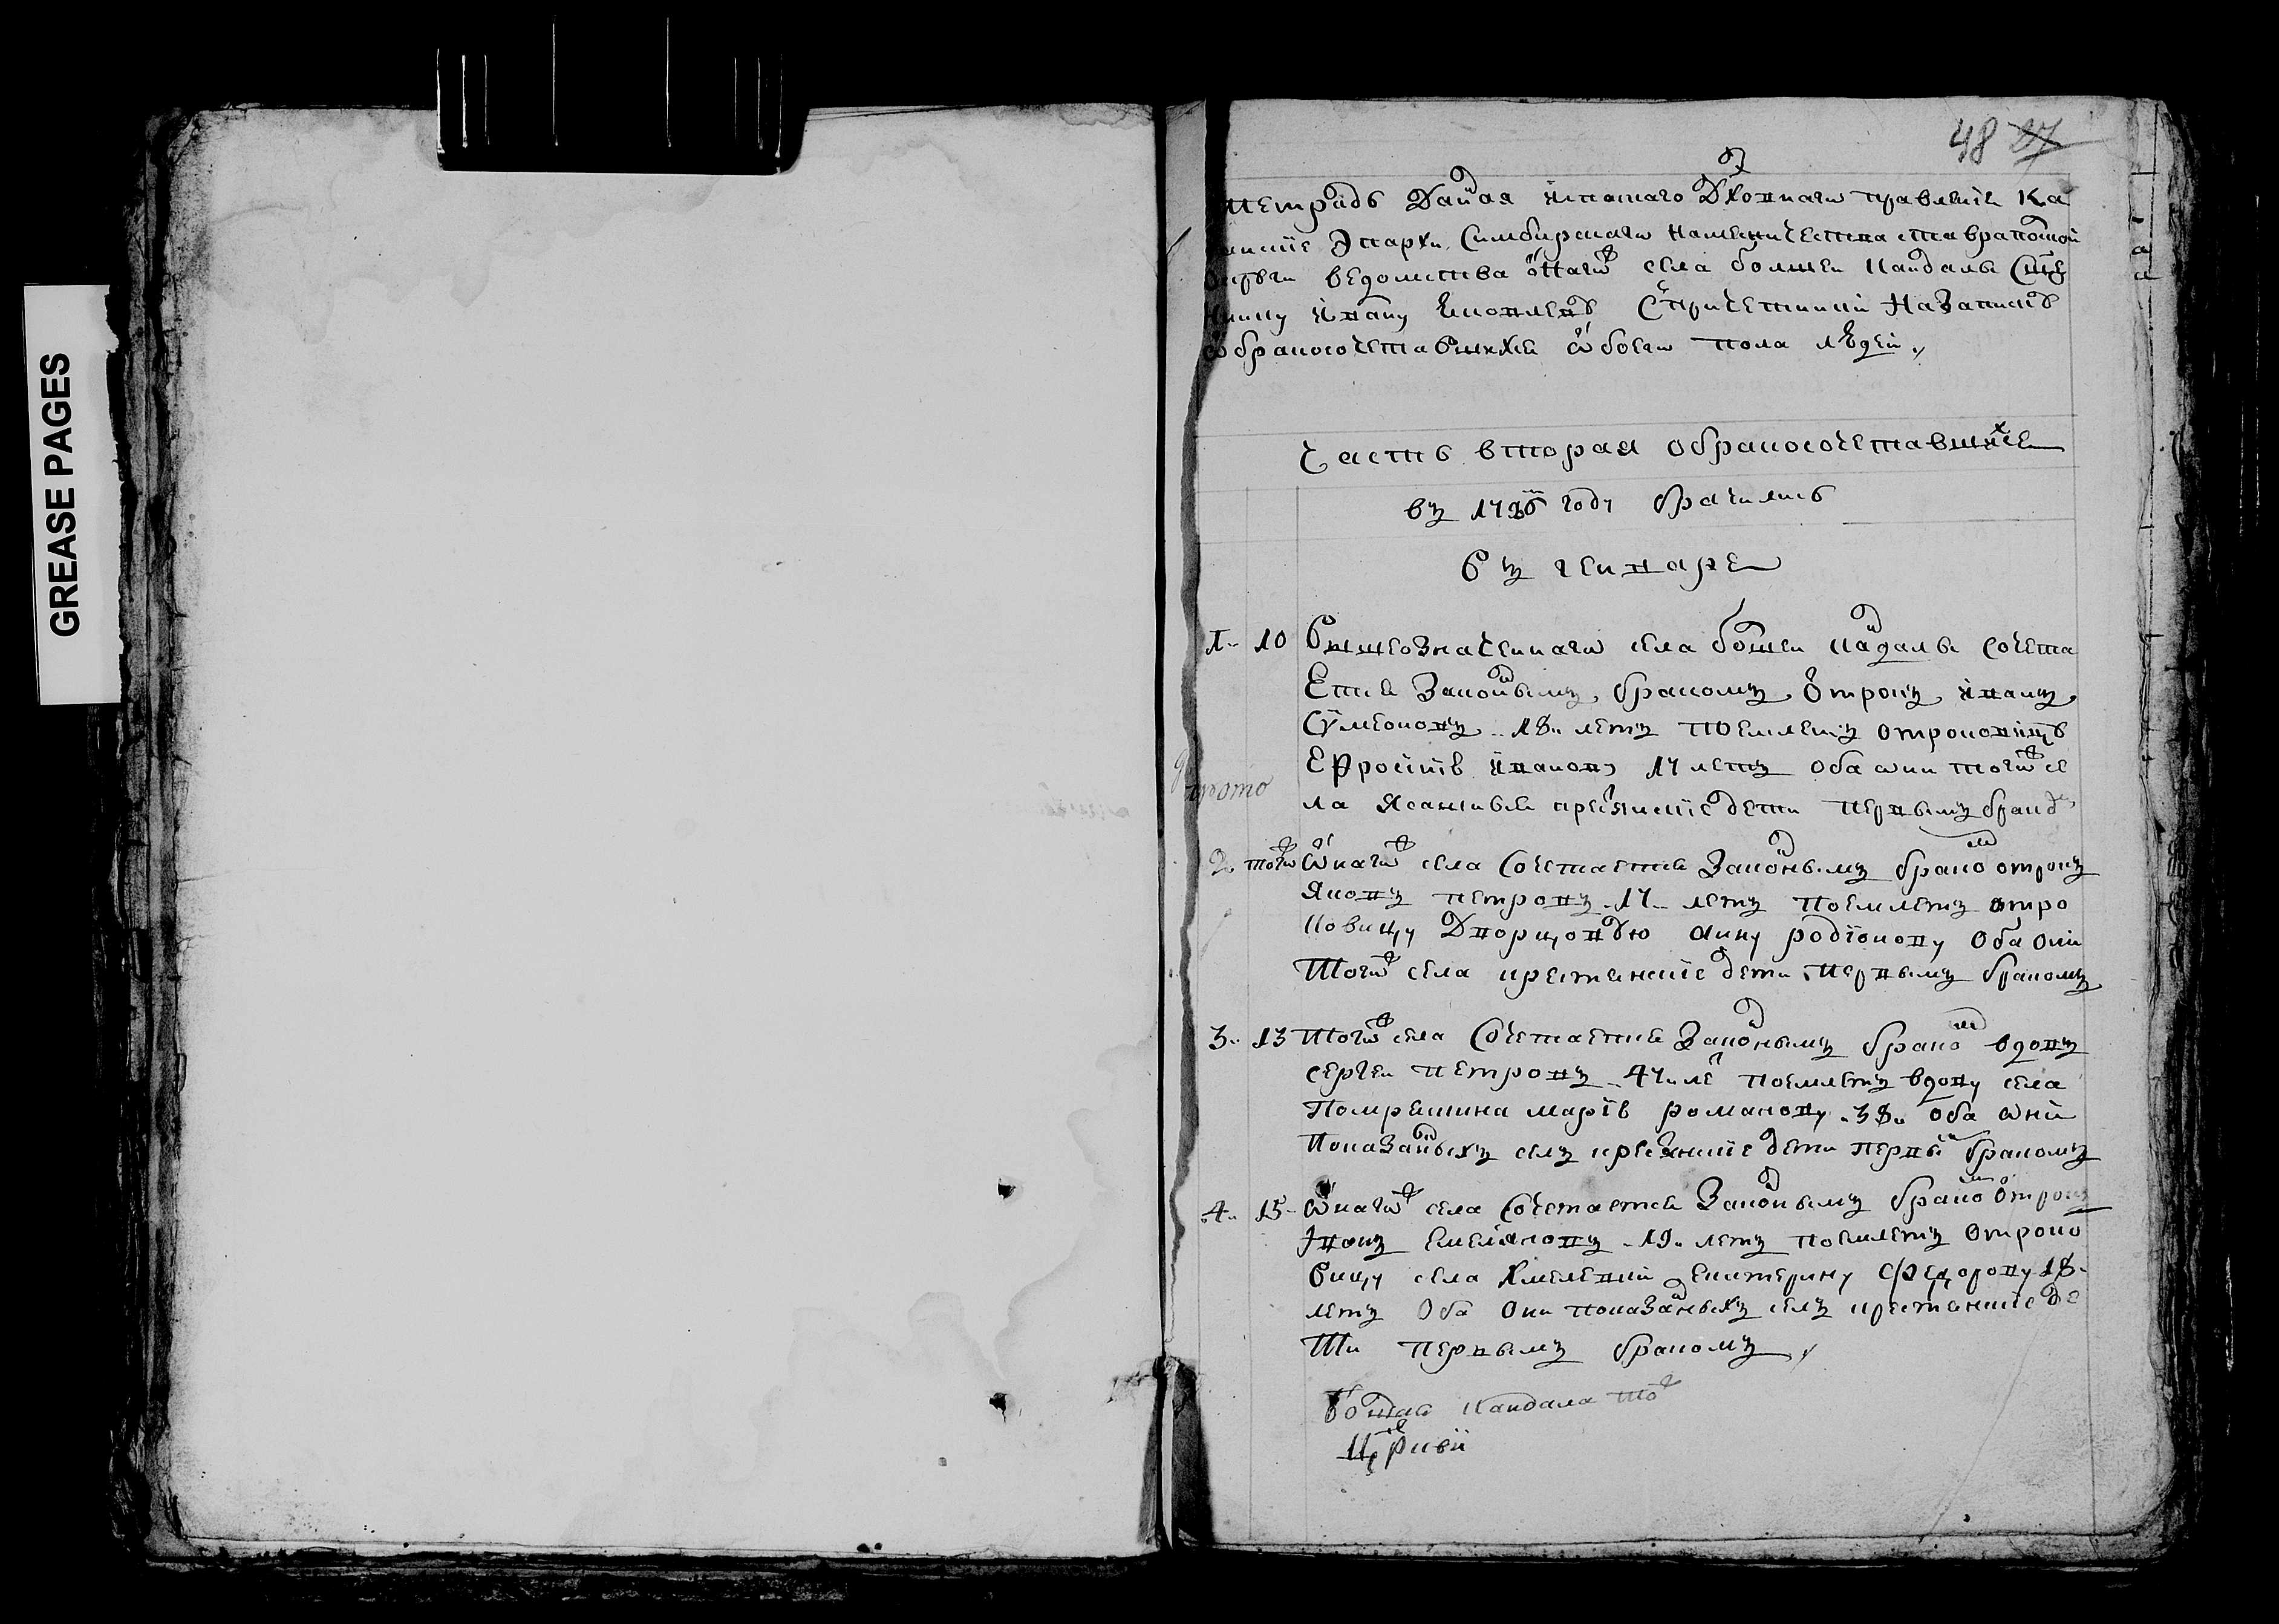 GREASE PAGES
48 27
тетрадь Даная изъ того Дховнаго правленіе Ка
Эпархи Симбирскаго намесничества ставрапольской
ведомства онаго села болшеи Кандалы Сще
ннику Ивану Яковлеву С причетники На Записку
о бракосочетавшихся обоего пола людей
Часть вторая о бракосочетавшихся
въ 17 6 году брачились
въ генваре
1 10 Вышеозначеннаго села болшеи кандалы сочета
Ется Законнымъ бракомъ Отрокъ Иванъ
Сумеоновъ 18 летъ поемлетъ отроковицу
Ефросинью Иванову 17 летъ оба они того се
ла крестьянские дети первымъ бракомъ
2 того Онаго села Сочетается Законнымъ бракомъ отрокъ
Яковъ петровъ 17 летъ поемлетъ отро
ковицу Дворцовою Анну родионову Оба они
Того села крестьянские дети первымъ бракомъ
3 13 Того села Сочетается Законнымъ бракомъ вдовъ
сергеи петровъ 47 ле поемлетъ вдову села
Помряскина марію романову 38 оба они
Показанныхъ селъ крестьянские дети первы бракомъ
4 15 Онаго села Сочетается Законнымъ бракомъ Отрокъ
Иванъ Емельяновъ 19 летъ поемлетъ Отроко
вицу села Хмелевки Екатерину Федорову 18
летъ Оба Они показанныхъ селъ крестьянские де
ти первымъ бракомъ
Болшая Кандала то
Црквй